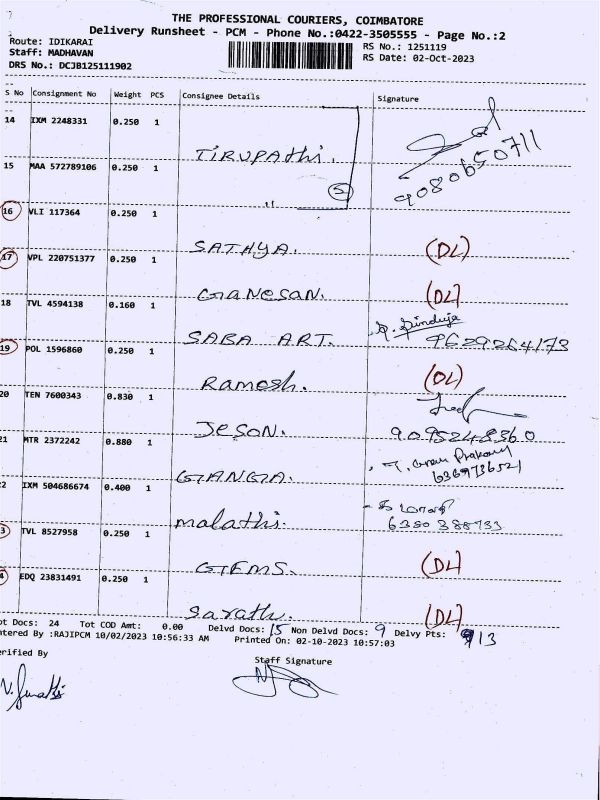 THE PROFESSIONAL COURIERS, COIMBATORE
Delivery Runsheet - PCM - Phone No.:0422-3505555 - Page No.:2
Route: IDIKARAI
RS No.: 1251119
Staff: MADHAVAN
RS Date: 02-Oct-2023
DRS No.: DCJB125111902
S No Consignment No Weight PCS Consignee Details Signature
14 IXM 2248331 0.250 1
TIRUPAthi.
9080650711
15 MAA 572789106 0.250 1
5
"
16 VLI 117364 0.250 1
SATHYA. (DL)
17 VPL 220751377 0.250 1
GANESAN. (DL)
18 TVL 4594138 0.160 1
SABA ART. 9629264173
19 POL 1596860 0.250 1
Ramesh. (DL)
20 TEN 7600343 0.830 1
JESON. 9095248360
21 MTR 2372242 0.880 1
GANGA. 6369736521
2 IXM 504686674 0.400 1
malathi. 6380388733
3 TVL 8527958 0.250 1
GEMS. (DL)
4 EDQ 23831491 0.250 1
Sarath. (DL)
ot Docs: 24 Tot COD Amt: 0.00 Delvd Docs: 15 Non Delvd Docs: 9 Delvy Pts: 13
ntered By :RAJIPCM 10/02/2023 10:56:33 AM Printed On: 02-10-2023 10:57:03
erified By
Staff Signature